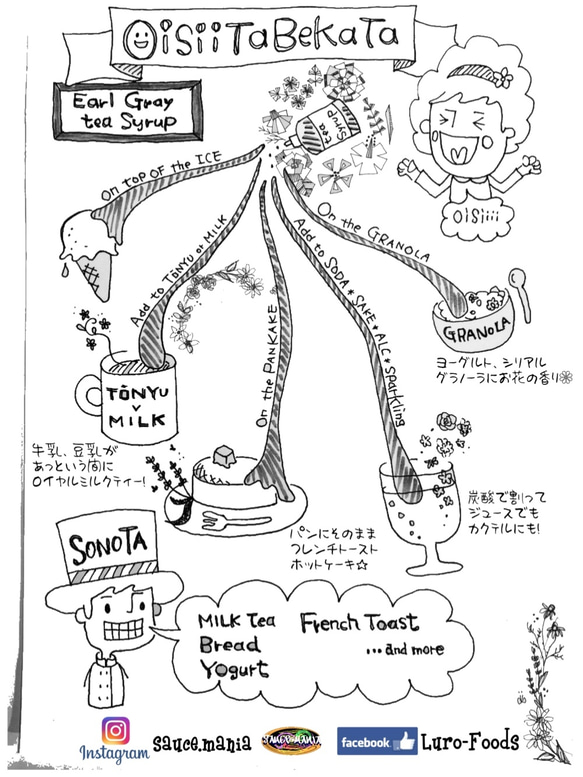 OiSiiTaBeKaTa
Earl Gray
tea Syrup
tea
syrup
OiSiiii
On TOP OF the ICE
Add to TŌNYU or MILK
On the PANKAKE
Add to SODA * SAKE * ALC * Sparkling
On the GRANOLA
GRANOLA
ヨーグルト、シリアル
グラノーラにお花の香り
TŌNYU
v
MiLK
牛乳、豆乳が
あっという間に
ロイヤルミルクティー!
パンにそのまま
フレンチトースト
ホットケーキ☆
炭酸で割って
ジュースでも
カクテルにも!
SONOTA
MILK Tea French Toast
Bread ...and more
Yogurt
Instagram sauce.mania SAUCE MANIA facebook Luro-Foods